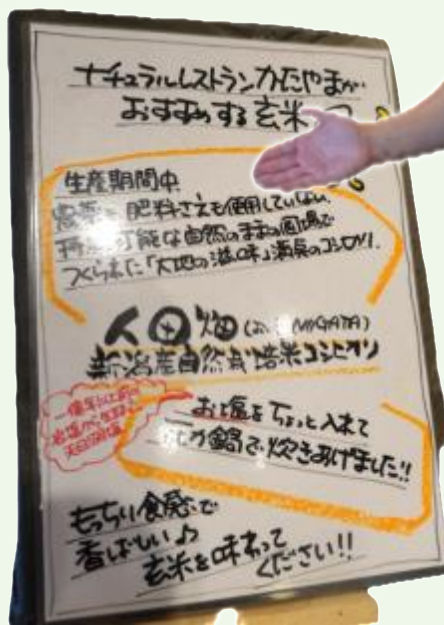 ナチュラルレストランかたやまが
おすすめする玄米
生産期間中
農薬 肥料さえも使用していない
可能な自然のままの圃場で
つくられた「大地の滋味」満点のコシヒカリ
人田畑
新潟産自然栽培米コシヒカリ
天日
お塩をちょっと入れて
力鍋で炊きあげました!!
もっちり食感で
香ばしい♪
玄米を味わって
ください!!